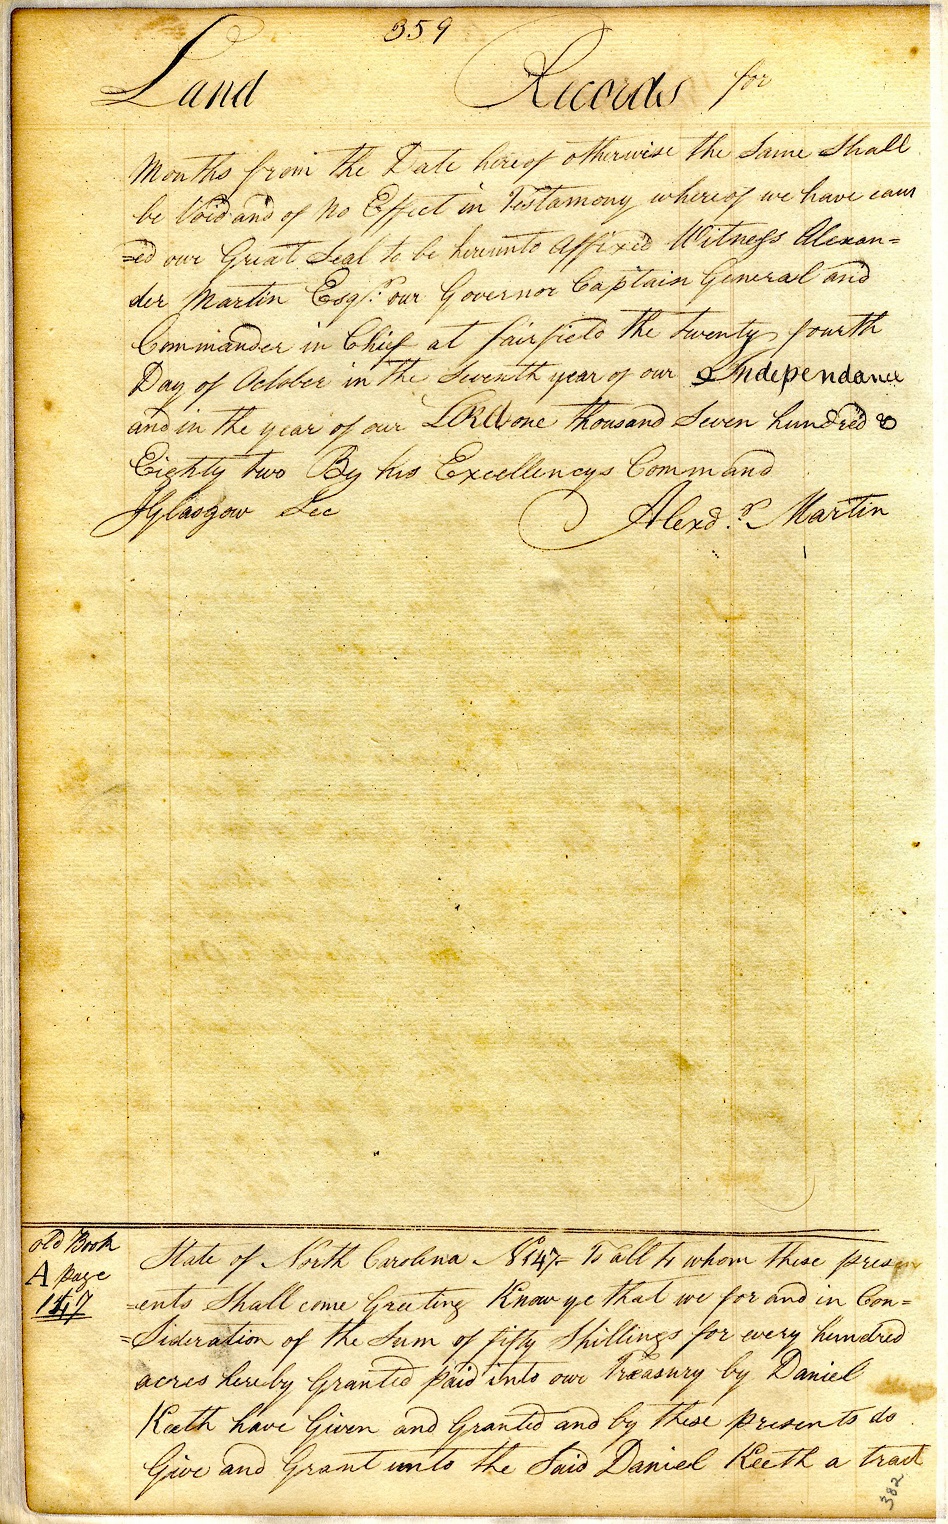 359
Land Records for
Months from the Date hereof otherwise the Same Shall
be Void and of No Effect in Testamony whereof we have caus
=ed our Great Seal to be hereunto Affixed Witness Alexan=
der Martin Esqr. our Governor Captain General and
Commander in Chief at fairfield the twenty fourth
Day of October in the Seventh year of our Independance
and in the year of our LORd one thousand Seven hundred &
Eighty two By his Excellencys Command
JGlasgow Sec Alexdr. Martin
old Book
A page
147
State of North Carolina No 147 To all to whom these presen
=ents Shall come Greeting Know ye that we for and in Con=
=Sideration of the Sum of fifty Shillings for every hundred
acres hereby Granted paid into our Treasury by Daniel
Keeth have Given and Granted and by these presents do
Give and Grant unto the Said Daniel Keeth a tract
382